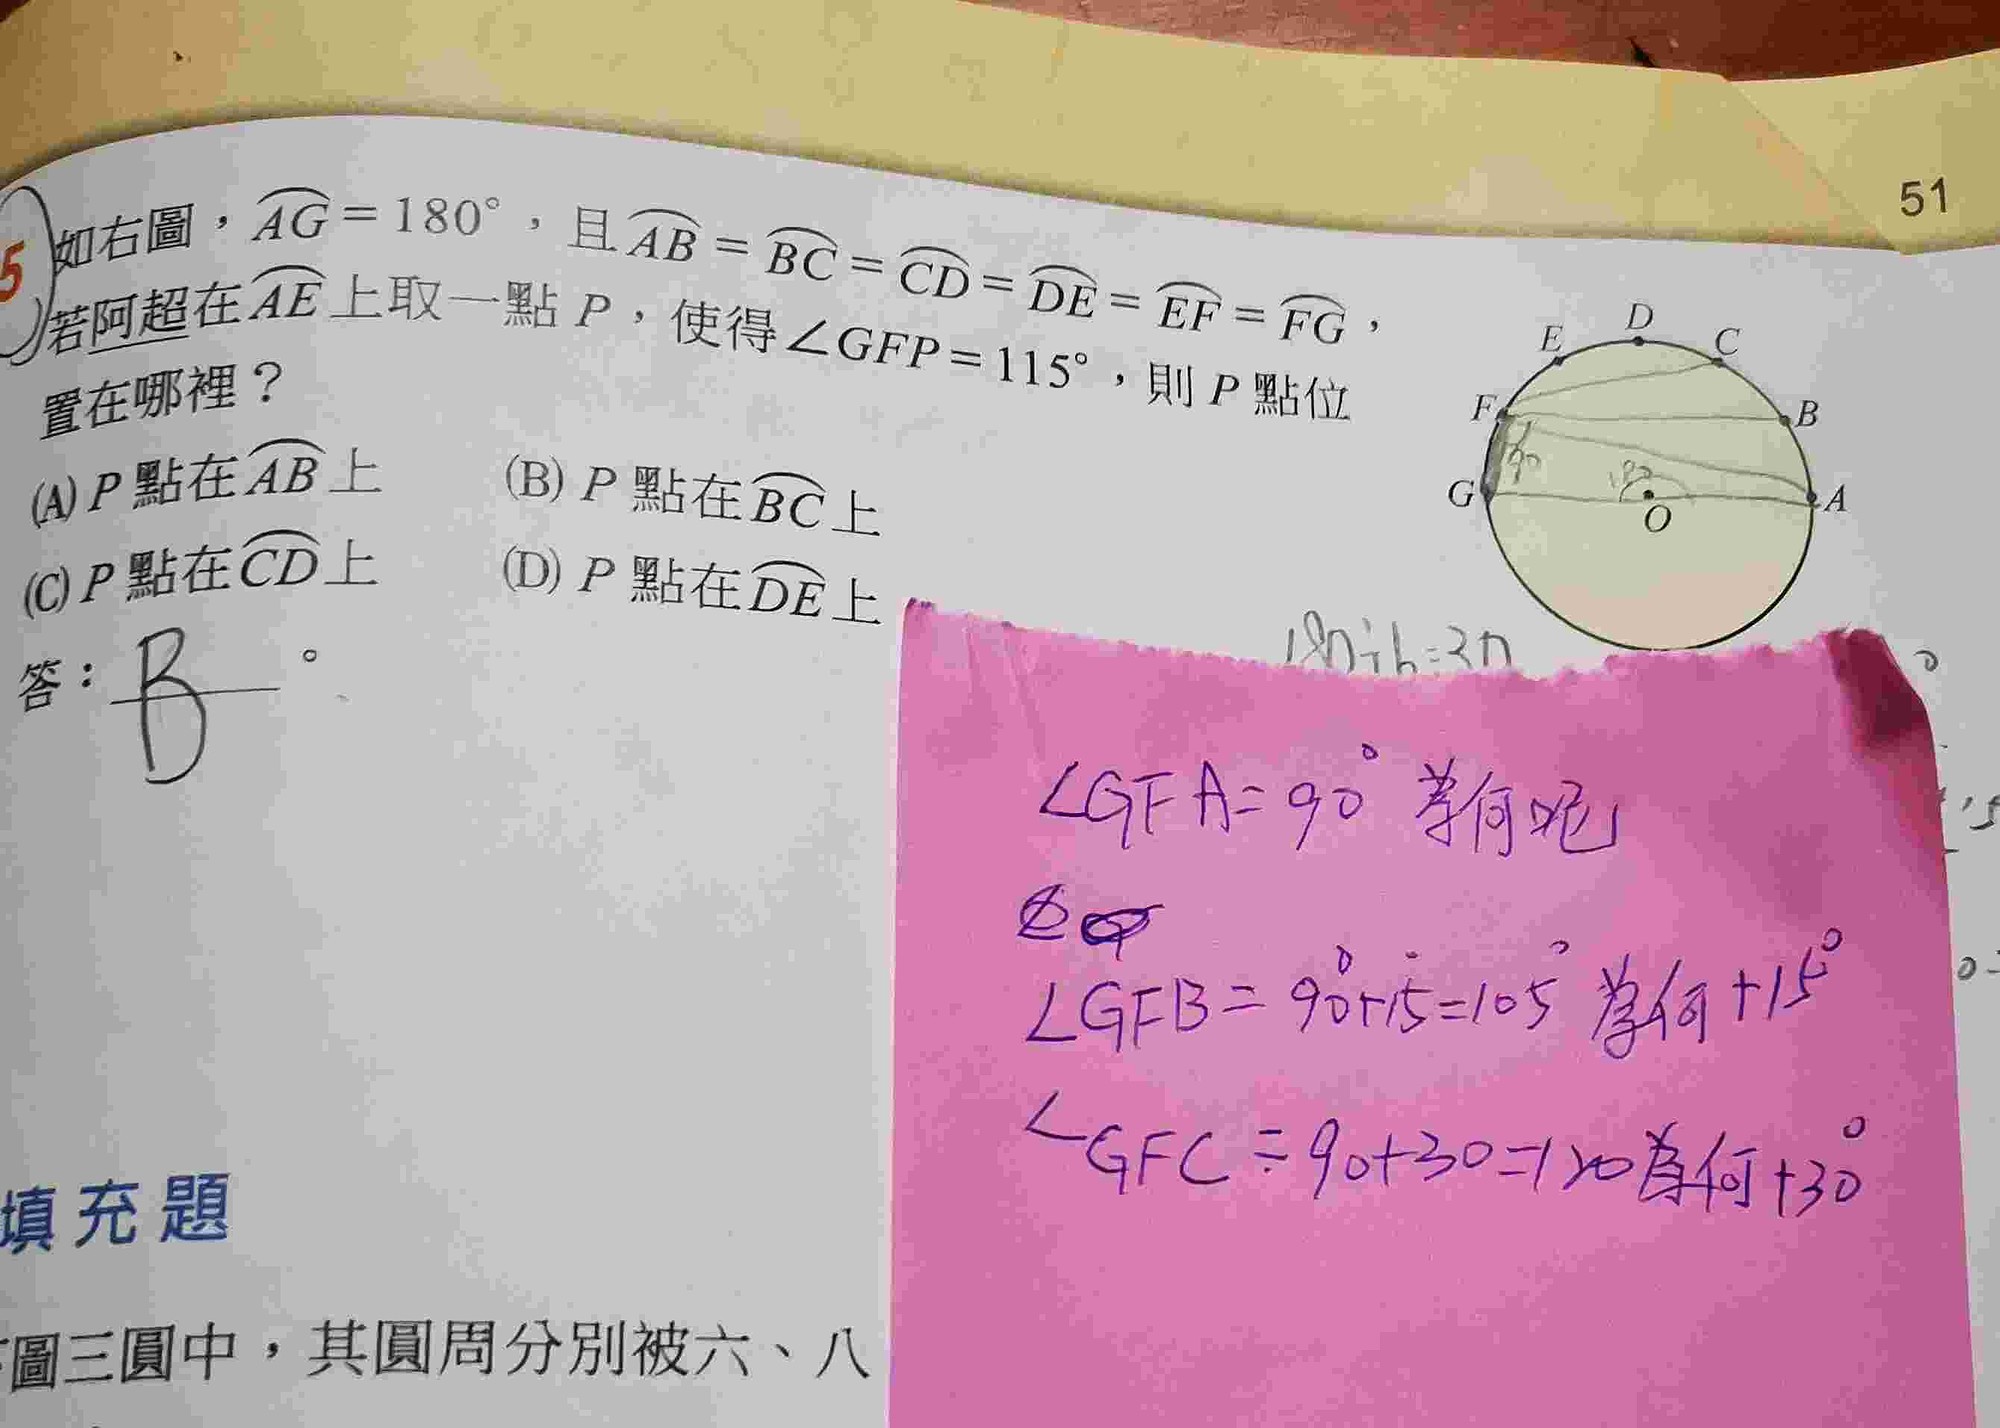 51
5 如右圖，AG＝180°，且AB＝BC＝CD＝DE＝EF＝FG，
若阿超在AE上取一點 P，使得∠GFP＝115°，則 P 點位
置在哪裡？
(A) P 點在AB上 (B) P 點在BC上
(C) P 點在CD上 (D) P 點在DE上
答：B。
E D C
F B
90 180
G O A
180÷6=30
∠GFA=90° 為何呢
∠GFB=90°+15=105° 為何+15°
∠GFC=90+30=120為何+30°
填充題
圖三圓中，其圓周分別被六、八